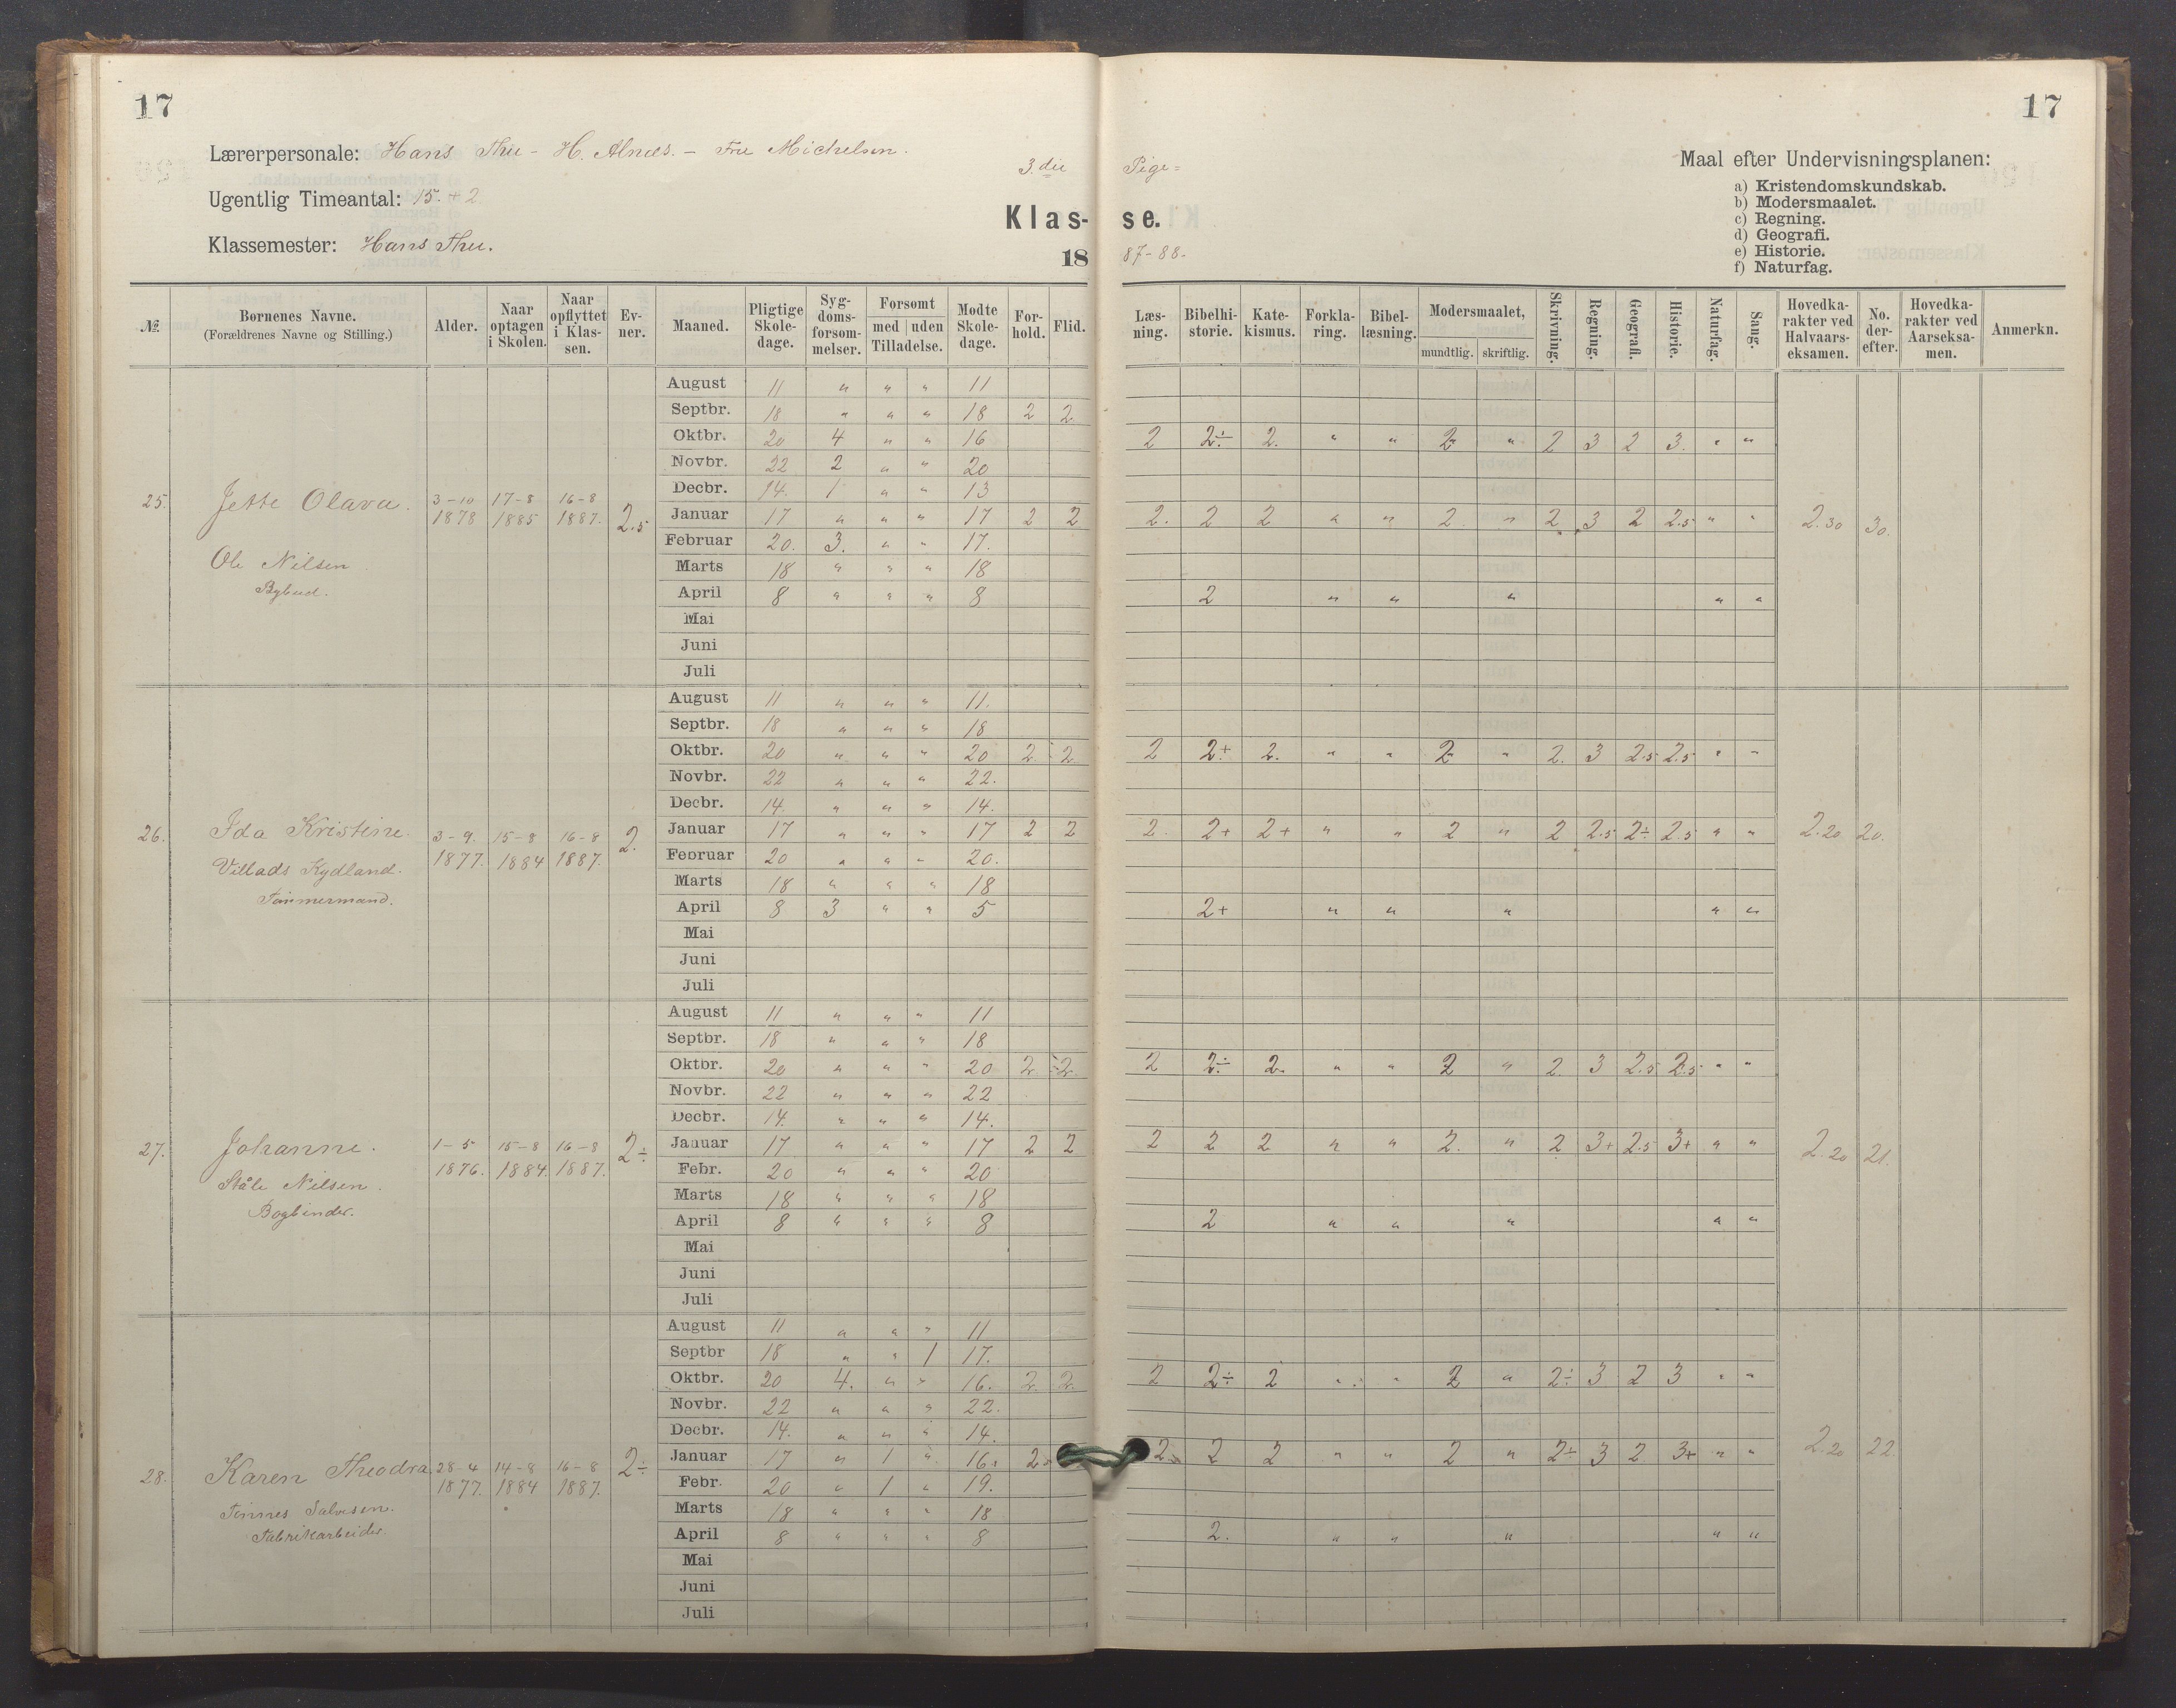 17
17
Lærerpersonale: Hans Thu - H. Alnæs. - Fru Michelsen.
Ugentlig Timeantal: 15. + 2.
Klassemester: Hans Thu.
3.die Pige=
Klas- se.
18 87-88.
Maal efter Undervisningsplanen:
a) Kristendomskundskab.
b) Modersmaalet.
c) Regning.
d) Geografi.
e) Historie.
f) Naturfag.
№ | Børnenes Navne. (Forældrenes Navne og Stilling.) | Alder. | Naar optagen i Skolen. | Naar opflyttet i Klassen. | Evner. | Maaned. | Pligtige Skoledage. | Sygdomsforsømmelser. | Forsømt med uden Tilladelse. | Mødte Skoledage. | Forhold. | Flid. | Læsning. | Bibelhistorie. | Katekismus. | Forklaring. | Bibellæsning. | Modersmaalet, mundtlig. skriftlig. | Skrivning. | Regning. | Geografi. | Historie. | Naturfag. | Sang. | Hovedkarakter ved Halvaarseksamen. | No. derefter. | Hovedkarakter ved Aarseksamen. | Anmerkn.
25. Jette Olava. 3-10 1878 17-8 1885 16-8 1887. 2.5
Ole Nilsen
Bybud.
August 11 " " " 11
Septbr. 18 " " " 18 2 2
Oktbr. 20 4 " " 16 2 2÷ 2. " " 2 " 2 3 2 3. " "
Novbr. 22 2 " " 20
Decbr. 14. 1 " " 13
Januar 17 " " " 17 2 2 2. 2 2 " " 2 " 2 3 2 2.5 " " 2.30 30.
Februar 20. 3. " " 17.
Marts 18 " " " 18
April 8 " " " 8 2 " " " " "
Mai
Juni
Juli
26. Ida Kristine. 3-9. 1877. 15-8 1884 16-8 1887. 2.
Villads Kydland.
Tømmermand.
August 11 " " " 11.
Septbr. 18 " " " 18
Oktbr. 20 " " " 20 2 2 2 2+ 2. " " 2 " 2. 3 2.5 2.5 " "
Novbr. 22 " " " 22.
Decbr. 14. " " " 14.
Januar 17 " " " 17 2 2 2. 2+ 2+ " " 2 " 2 2.5 2÷ 2.5 " " 2.20 20.
Februar 20 " " " 20.
Marts 18 " " " 18
April 8 3 " " 5 2+ " " " " "
Mai
Juni
Juli
27. Johanne. 1-5 1876. 15-8 1884. 16-8 1887. 2÷
Ståle Nilsen.
Bogbinder.
August 11 " " " 11
Septbr. 18 " " " 18
Oktbr. 20 " " " 20 2 2 2 2÷ 2. " " 2 " 2. 3 2.5 2.5 " "
Novbr. 22 " " " 22
Decbr. 14. " " " 14.
Januar 17. " " " 17 2 2 2 2 2 " " 2. " 2 3+ 2.5 3+ " " 2.20 21.
Febr. 20 " " " 20
Marts 18 " " " 18
April 8 " " " 8 2 " " " " "
Mai
Juni
Juli
28. Karen Theodra 28-4 1877. 14-8 1884 16-8 1887. 2÷
Tønnes Salvesen.
Fabrikarbeider.
August 11 " " " 11
Septbr 18 " " 1 17.
Oktbr. 20 4. " " 16. 2. 2. 2 2÷ 2 " " 2 " 2÷ 3 2 3 " "
Novbr. 22 " " " 22.
Decbr. 14. " " " 14.
Januar 17 " 1 " 16. 2. 2. 2 2 " " 2 " 2÷ 3 2 3+ " " 2.20 22
Febr. 20 " 1 " 19.
Marts 18 " " " 18
April 8 " " " 8 2. " " " " "
Mai
Juni
Juli